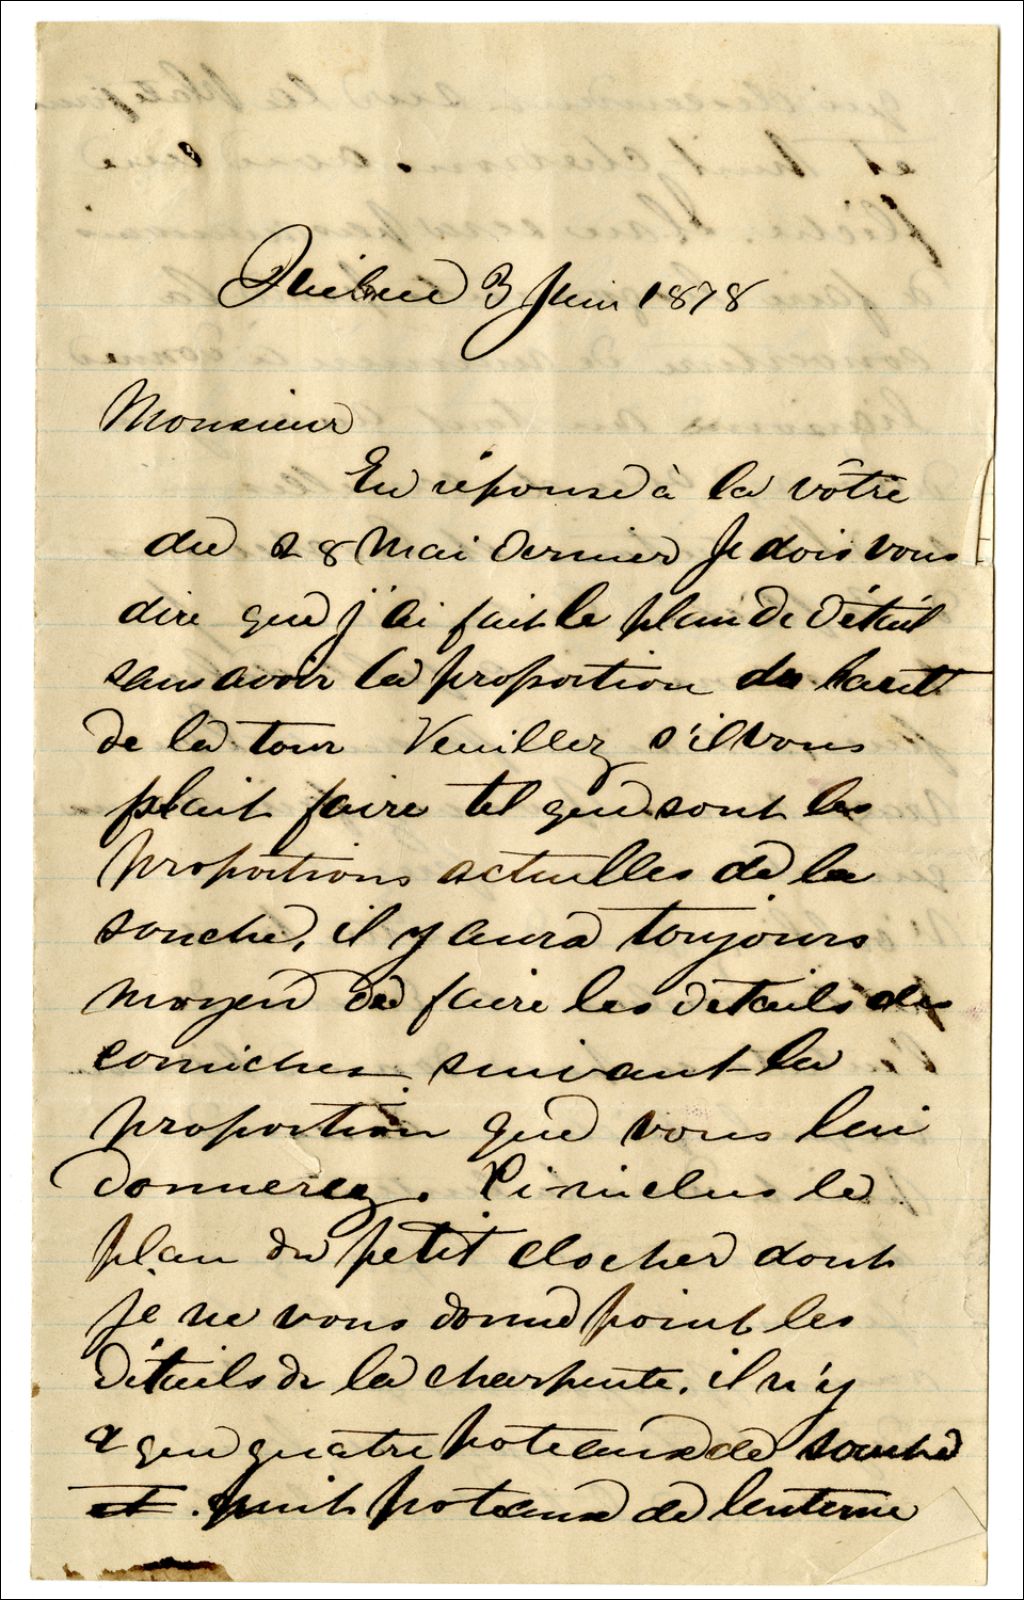 Québec 3 Juin 1878
Monsieur
En réponse à la vôtre
du 28 Mai dernier Je dois vous
dire que j'ai fait le plan de détail
sans avoir la proportion du haut
de la tour Veuillez s'il vous
plait faire tel que sont les
proportions actuelles de la
souche, il y aura toujours
moyen de faire les détails des
corniches suivant la
proportion que vous lui
donnerez. Ci-inclus le
plan du petit clocher dont
je ne vous donne point les
détails de la charpente. il n'y
a que quatre poteaux de souche
et huit poteaux de lanterne